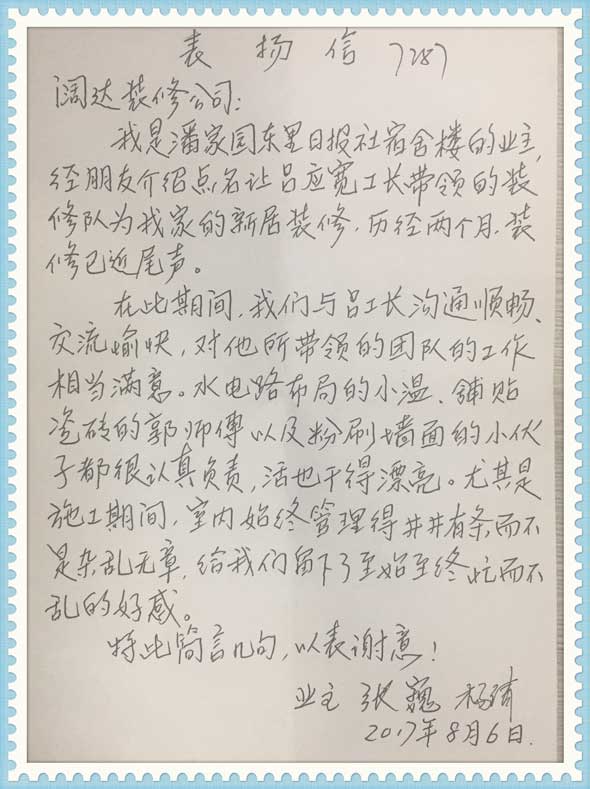 表扬信 7287
阔达装修公司:
我是潘家园东里日报社宿舍楼的业主,
经朋友介绍点名让吕应宽工长带领的装
修队为我家的新居装修,历经两个月,装
修已近尾声。
在此期间,我们与吕工长沟通顺畅、
交流愉快,对他所带领的团队的工作
相当满意。水电路布局的小温、铺贴
瓷砖的郭师傅以及粉刷墙面的小伙
子都很认真负责,活也干得漂亮。尤其是
施工期间,室内始终管理得井井有条而不
是杂乱无章,给我们留下了至始至终忙而不
乱的好感。
特此简言几句,以表谢意!
业主 张巍 杨
2017年8月6日.